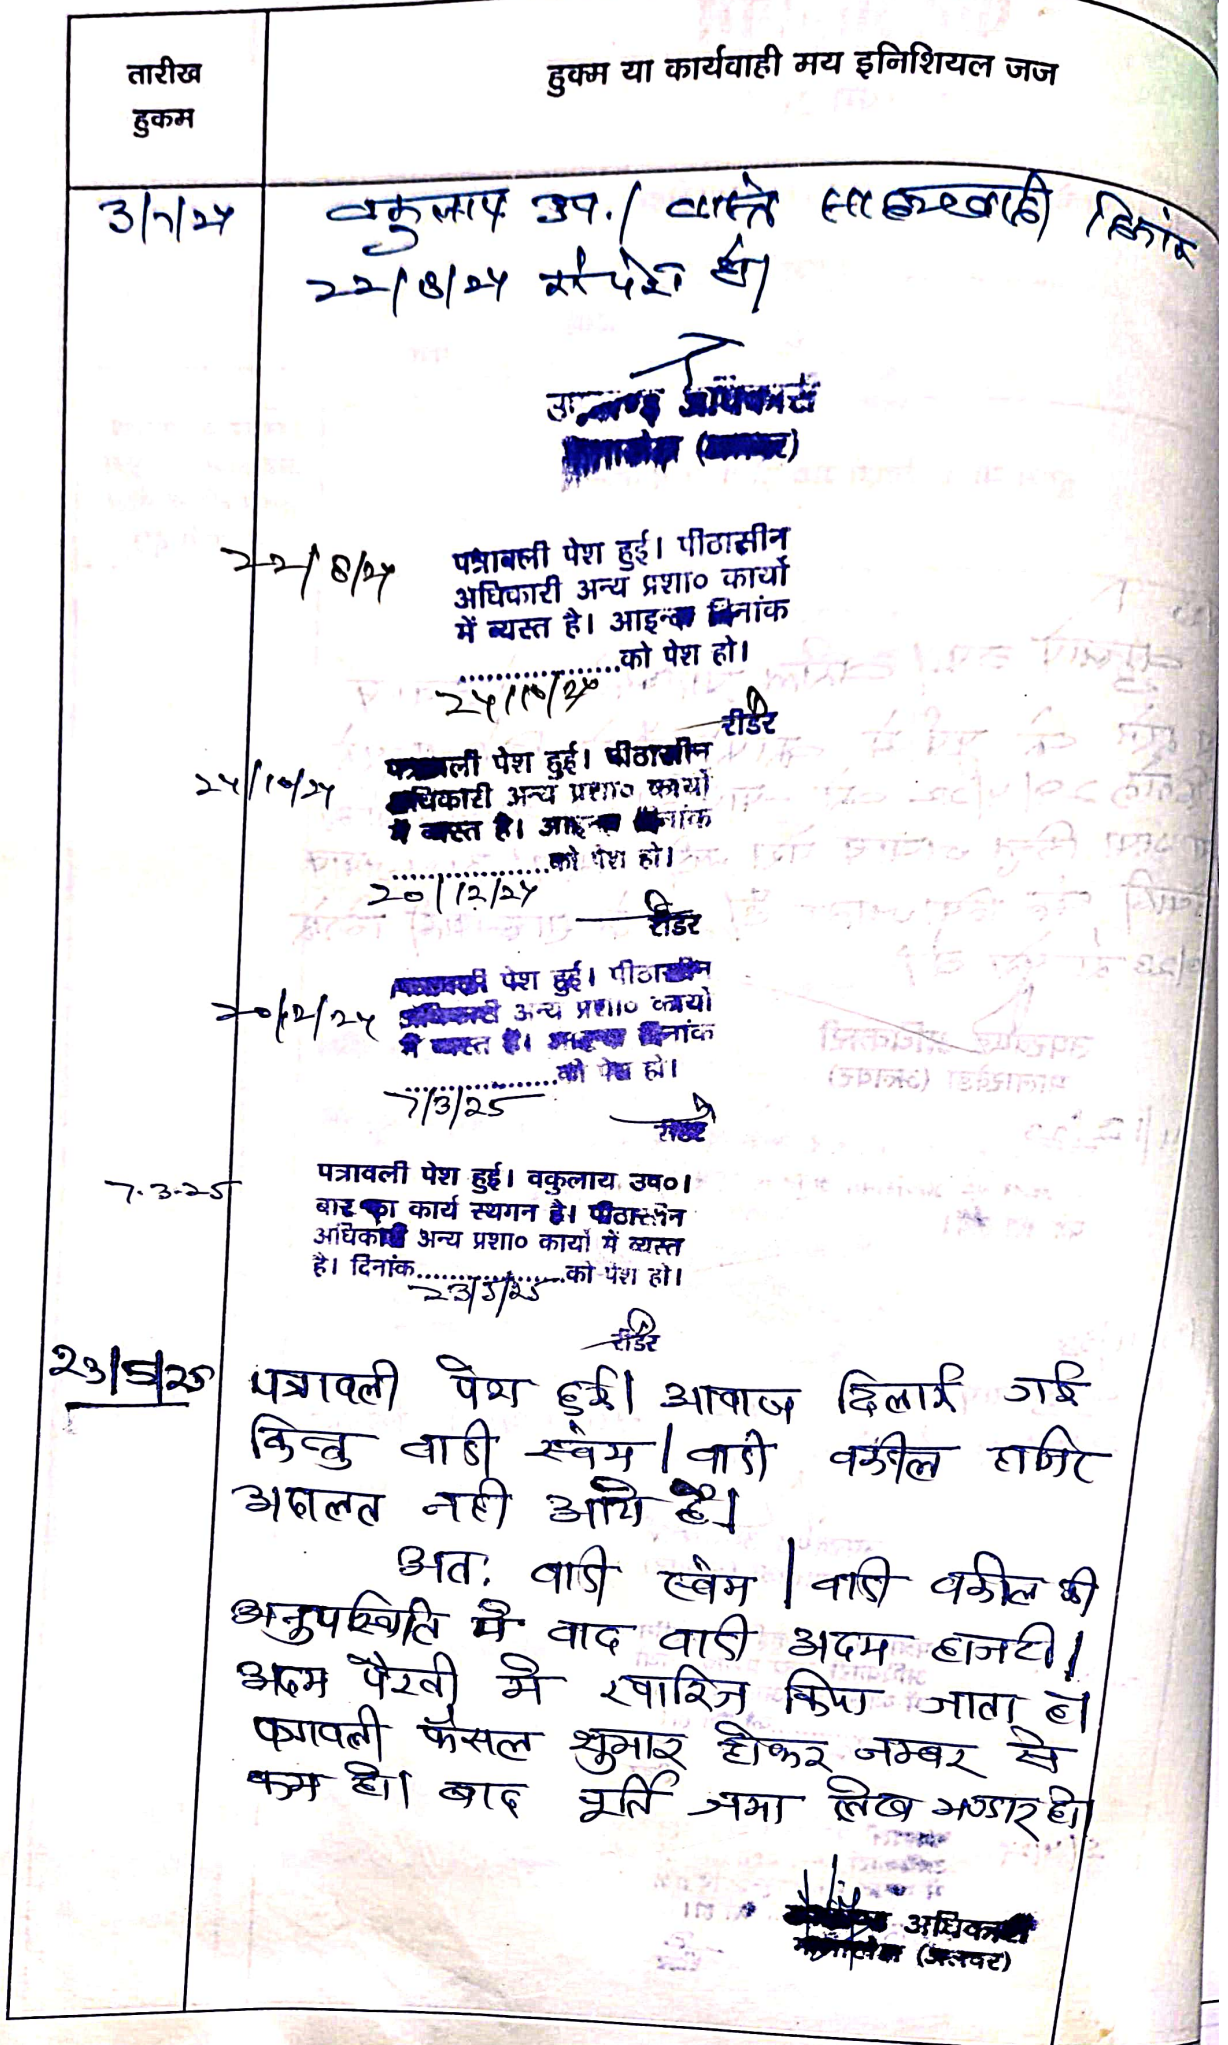 तारीख
हुकम
हुक्म या कार्यवाही मय इनिशियल जज
3/7/24 वकुलाय उप./ वास्ते दिनांक
22/8/24 को पेश हो।
उपखण्ड अधिकारी
22/8/24
पत्रावली पेश हुई। पीठासीन
अधिकारी अन्य प्रशा० कार्यो
में व्यस्त है। आइन्दा दिनांक
..................को पेश हो।
24/10/24
रीडर
24/10/24
पत्रावली पेश हुई। पीठासीन
अधिकारी अन्य प्रशा० कार्यो
में व्यस्त है। आइन्दा दिनांक
..................को पेश हो।
20/12/24
रीडर
20/12/24
पत्रावली पेश हुई। पीठासीन
अधिकारी अन्य प्रशा० कार्यो
में व्यस्त है। आइन्दा दिनांक
..................को पेश हो।
7/3/25
रीडर
7.3.25
पत्रावली पेश हुई। वकुलाय उप०।
बार का कार्य स्थगन है। पीठासीन
अधिकारी अन्य प्रशा० कार्यो में व्यस्त
है। दिनांक..................को पेश हो।
23/5/25
रीडर
23/5/25
पत्रावली पेश हुई। आवाज दिलाई गई
किन्तु वादी स्वंम / वादी वकील हाजिर
अदालत नही आये है।
अत: वादी स्वंम / वादी वकील की
अनुपस्थिति मे वाद वादी अदम हाजरी/
अदम पैरवी मे खारिज किया जाता है।
पत्रावली फैसल शुमार होकर नम्बर से
कम हो। बाद पूर्ति जमा लेख भण्डार हो।
अधिकारी
(अलवर)